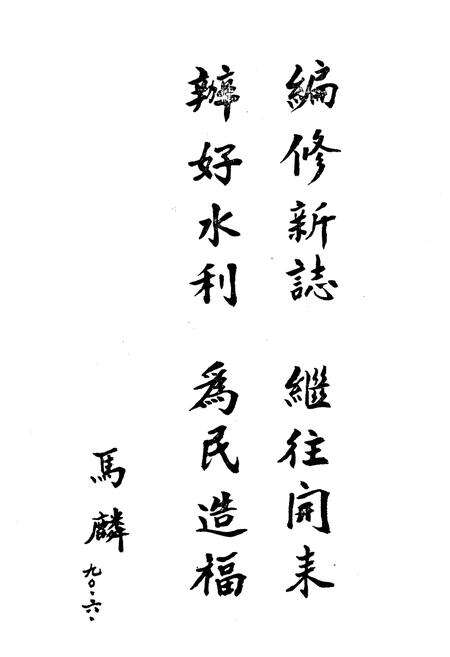 編修新誌 繼往開来
辦好水利 為民造福
馬麟
九〇·六·